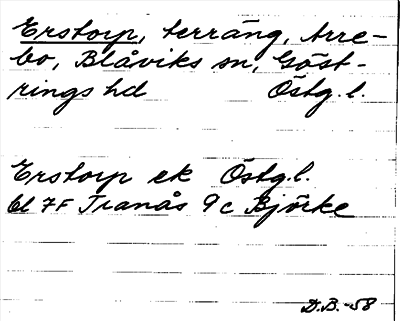 Erstorp, terräng, Arre-
bo, Blåviks sn, Göst-
rings hd Östg. l.
Erstorp ek Östg. l.
Bl 7F Tranås 9c Bjärke
D.B.-58